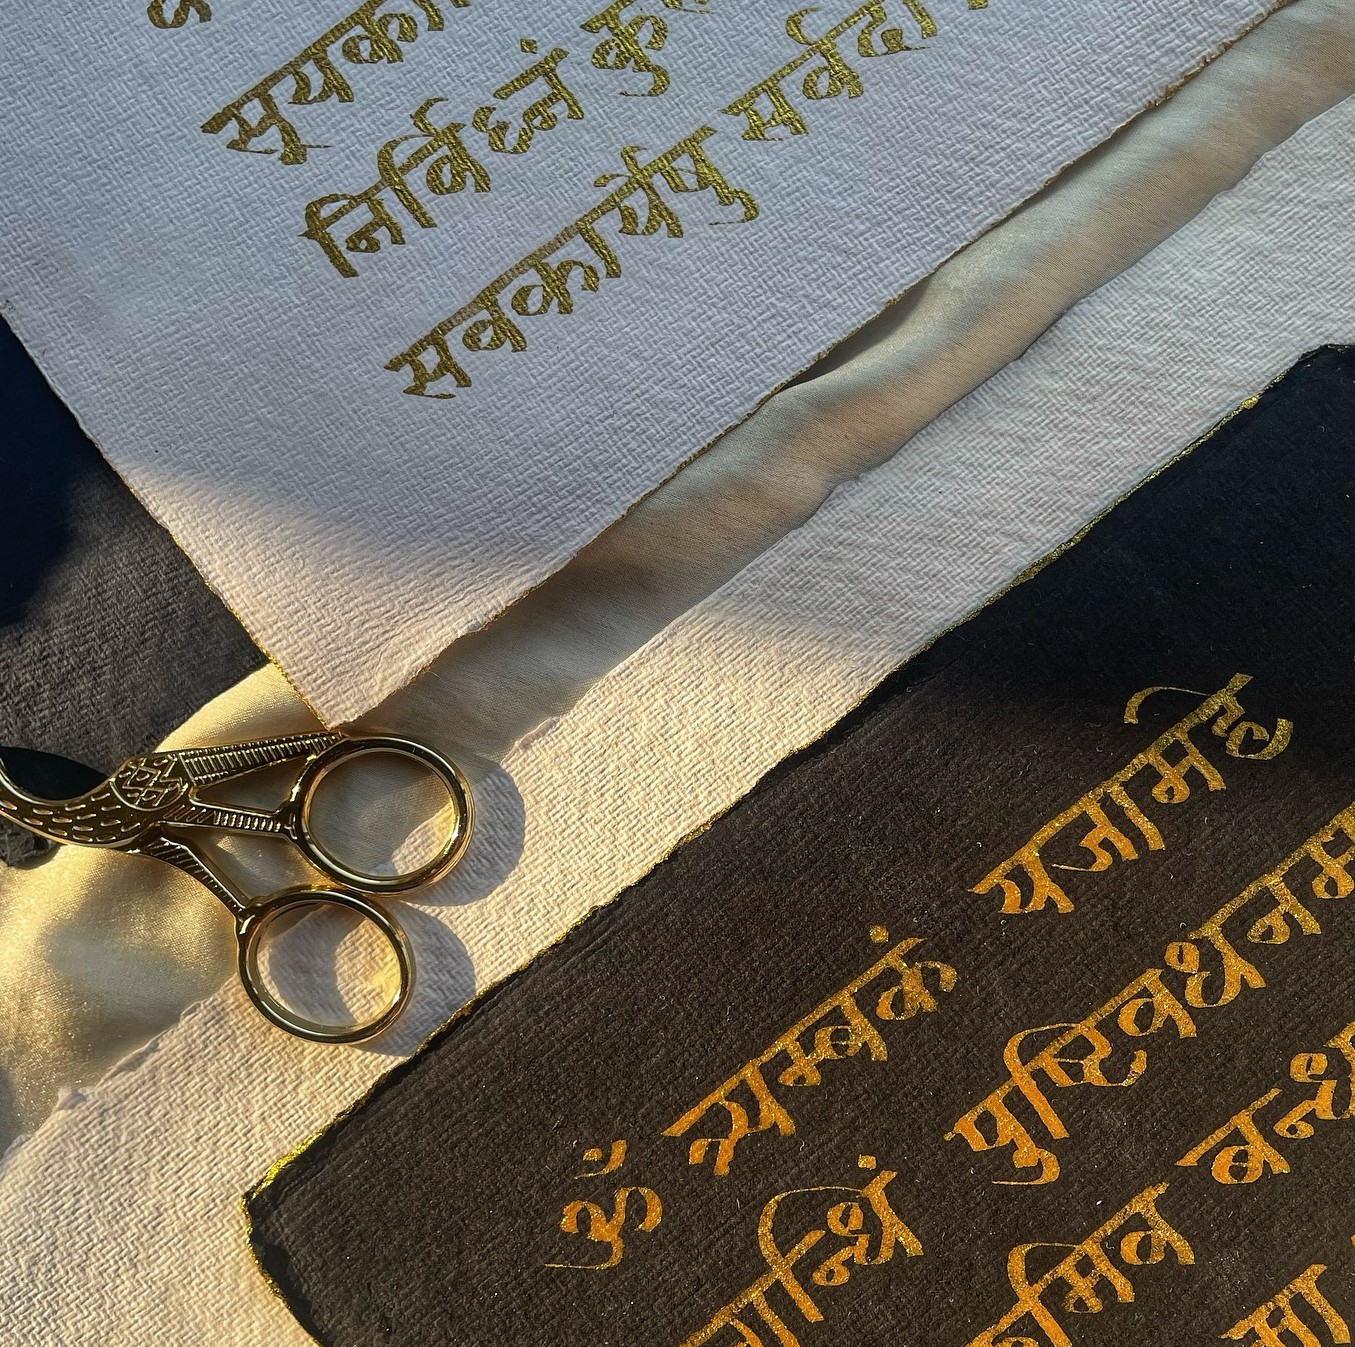 सूर्यको
निर्विघ्नं कु
सर्वकार्येषु सर्वदा
ॐ त्र्यम्बकं यजामहे
गन्धिं पुष्टिवर्धनम
कमिव बन्ध
मा